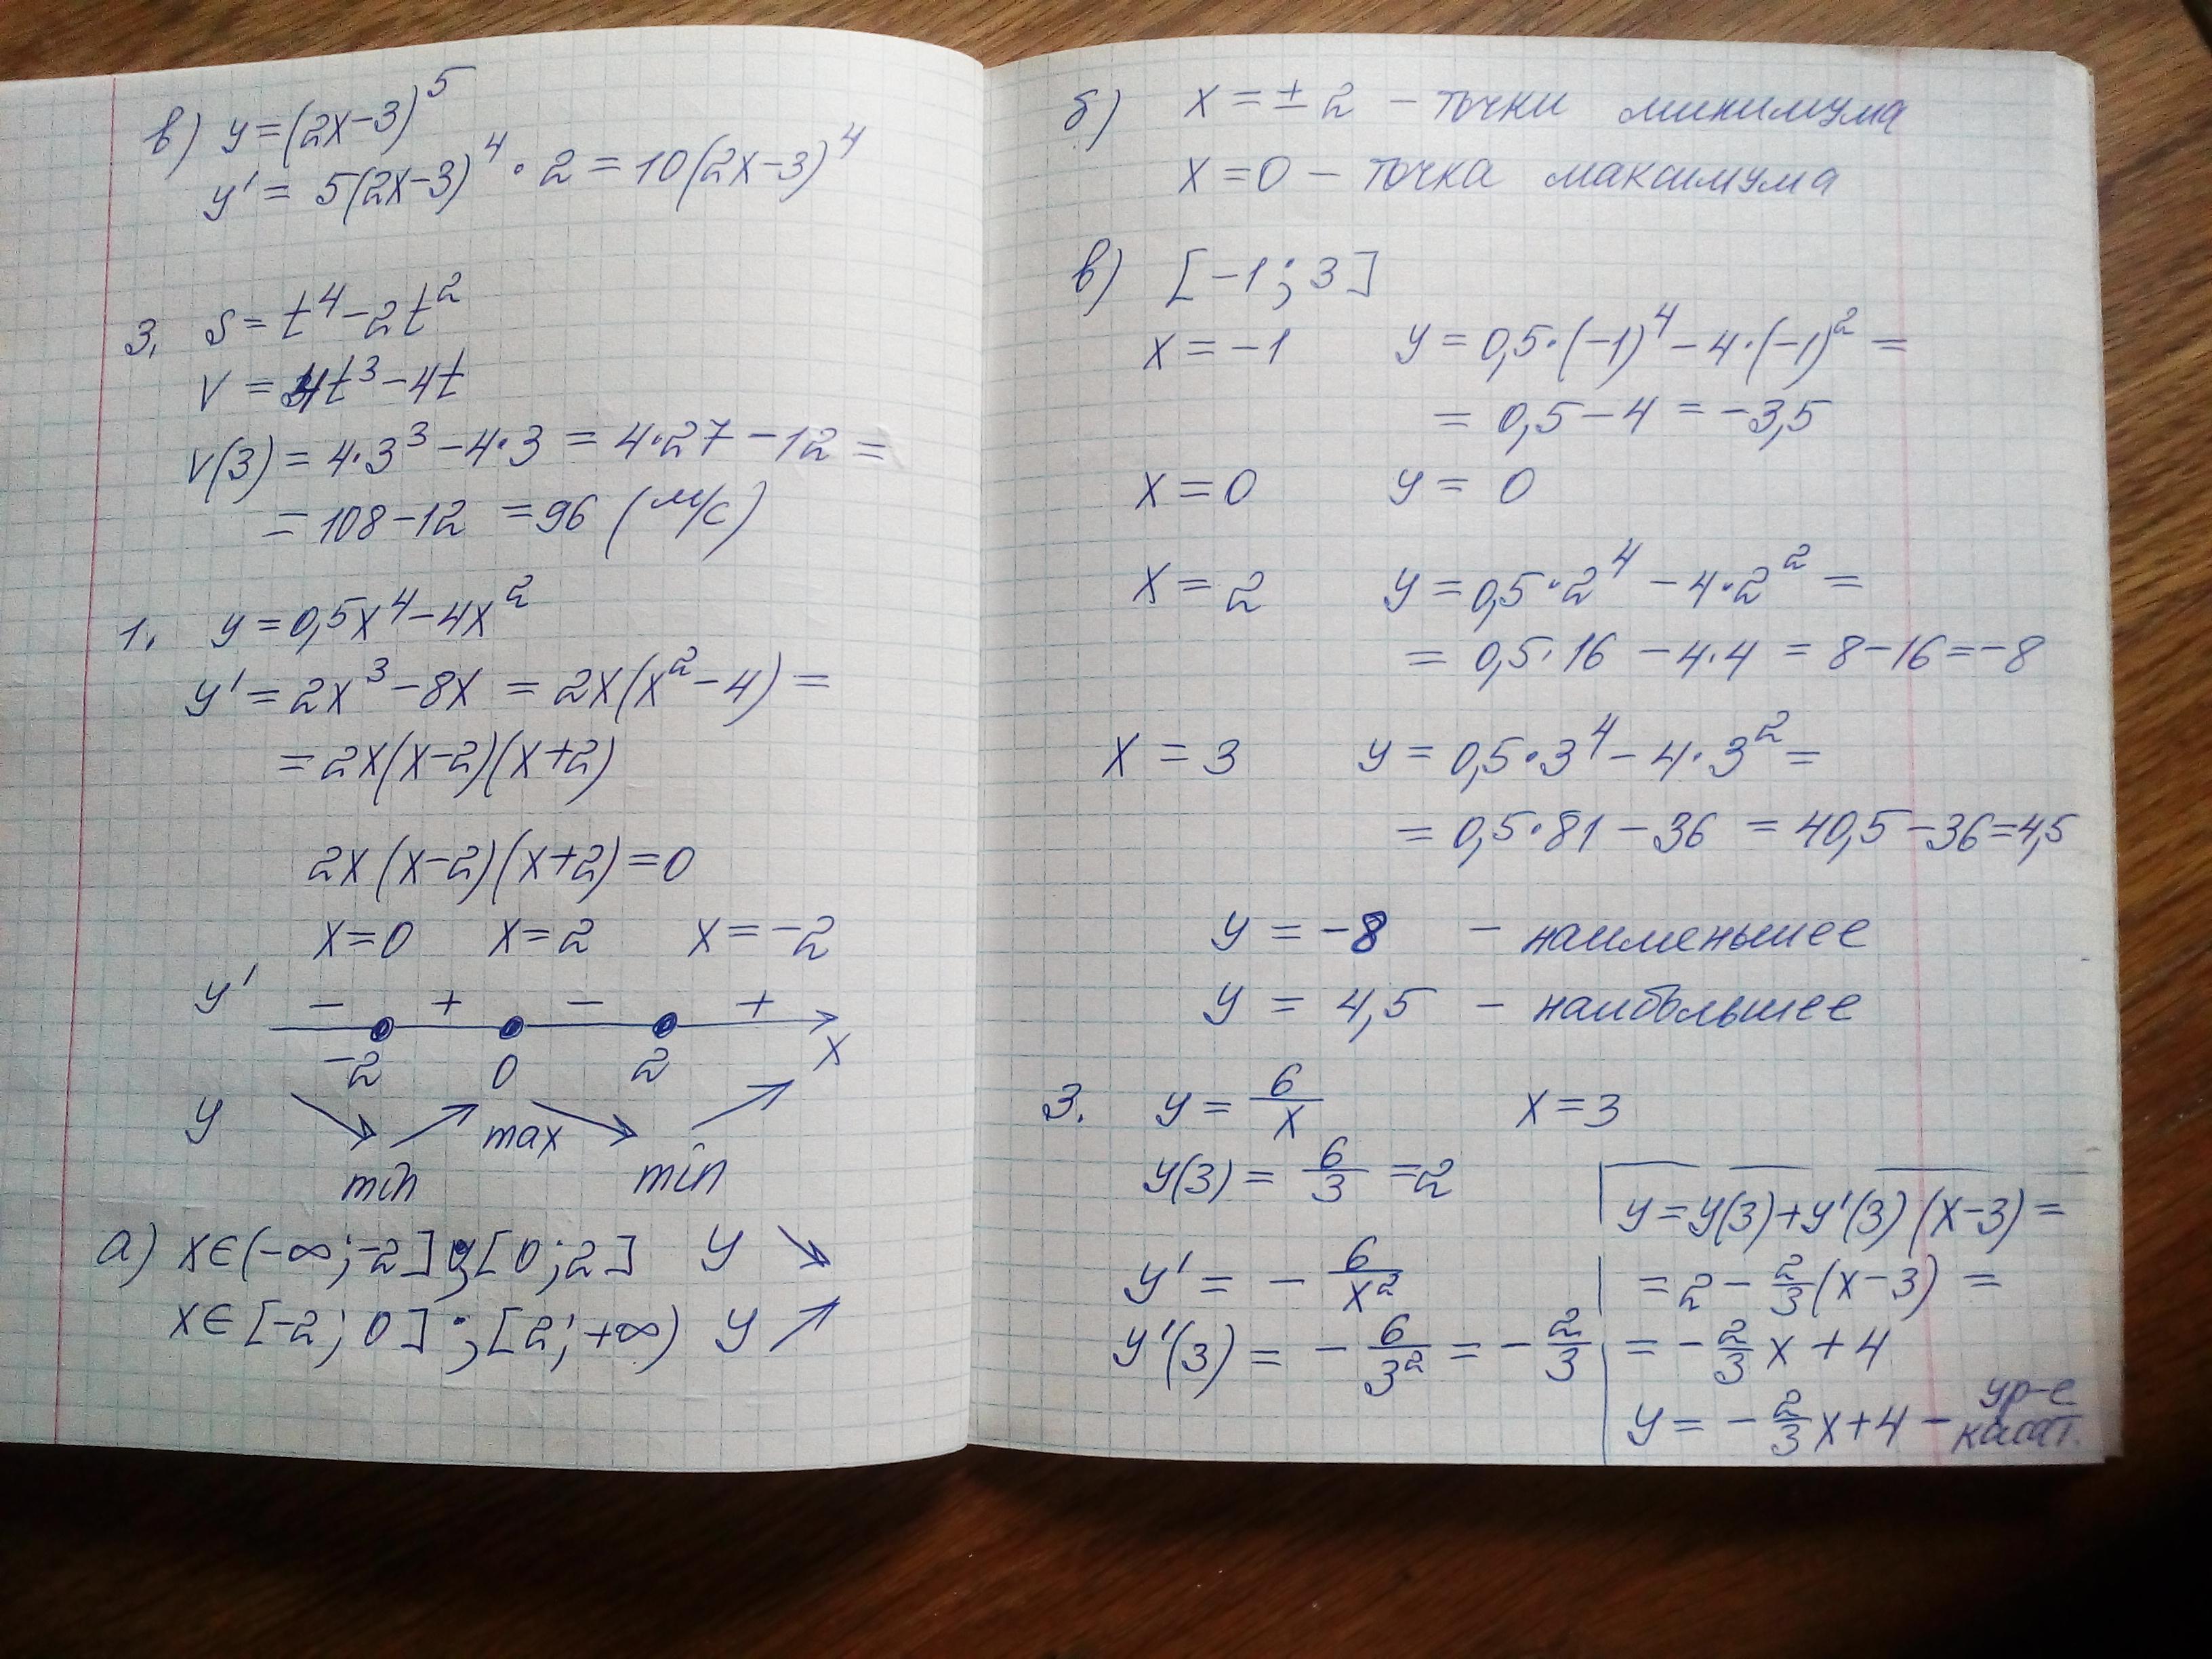 в) y=(2x-3)⁵
y' = 5(2x-3)⁴ · 2 = 10(2x-3)⁴
3. S = t⁴ - 2t²
V = 4t³ - 4t
V(3) = 4·3³ - 4·3 = 4·27 - 12 =
= 108 - 12 = 96 (м/с)
1. y = 0,5x⁴ - 4x²
y' = 2x³ - 8x = 2x(x² - 4) =
= 2x(x-2)(x+2)
2x(x-2)(x+2) = 0
x=0 x=2 x=-2
y' - + - +
-2 0 2 x
y ↘ ↗ max ↘ ↗
min min
а) x∈(-∞;-2];[0;2] y ↘
x∈[-2;0];[2;+∞) y ↗
б) x = ±2 - точки минимума
x = 0 - точка максимума
в) [-1;3]
x = -1 y = 0,5·(-1)⁴ - 4·(-1)² =
= 0,5 - 4 = -3,5
x = 0 y = 0
x = 2 y = 0,5·2⁴ - 4·2² =
= 0,5·16 - 4·4 = 8 - 16 = -8
x = 3 y = 0,5·3⁴ - 4·3² =
= 0,5·81 - 36 = 40,5 - 36 = 4,5
y = -8 - наименьшее
y = 4,5 - наибольшее
3. y = 6/x x = 3
y(3) = 6/3 = 2
y' = - 6/x²
y'(3) = - 6/3² = - 2/3
y = y(3) + y'(3)(x-3) =
= 2 - 2/3(x-3) =
= - 2/3 x + 4
y = - 2/3 x + 4 - ур-е
касат.